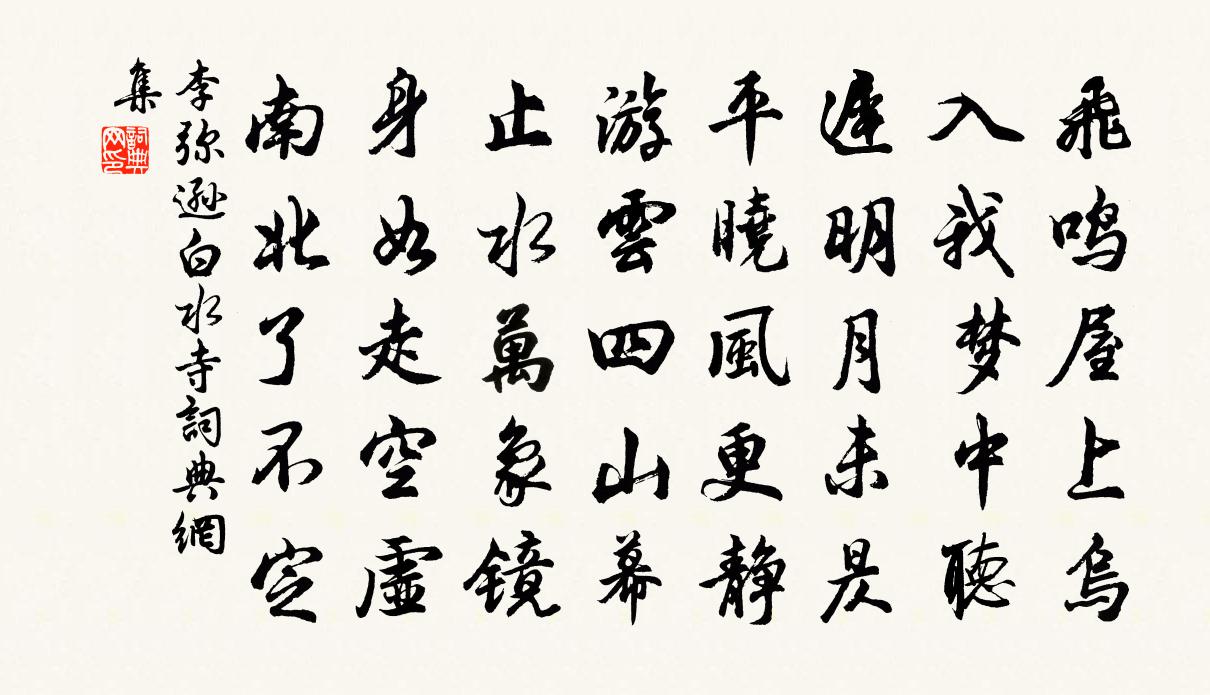 飛鳴屋上烏
入我梦中聽
遲明月未昃
平曉風更静
游雲四山幕
止水萬象鏡
身如走空虛
南北了不定
李弥遜白水寺詞典網
集
詞典网印